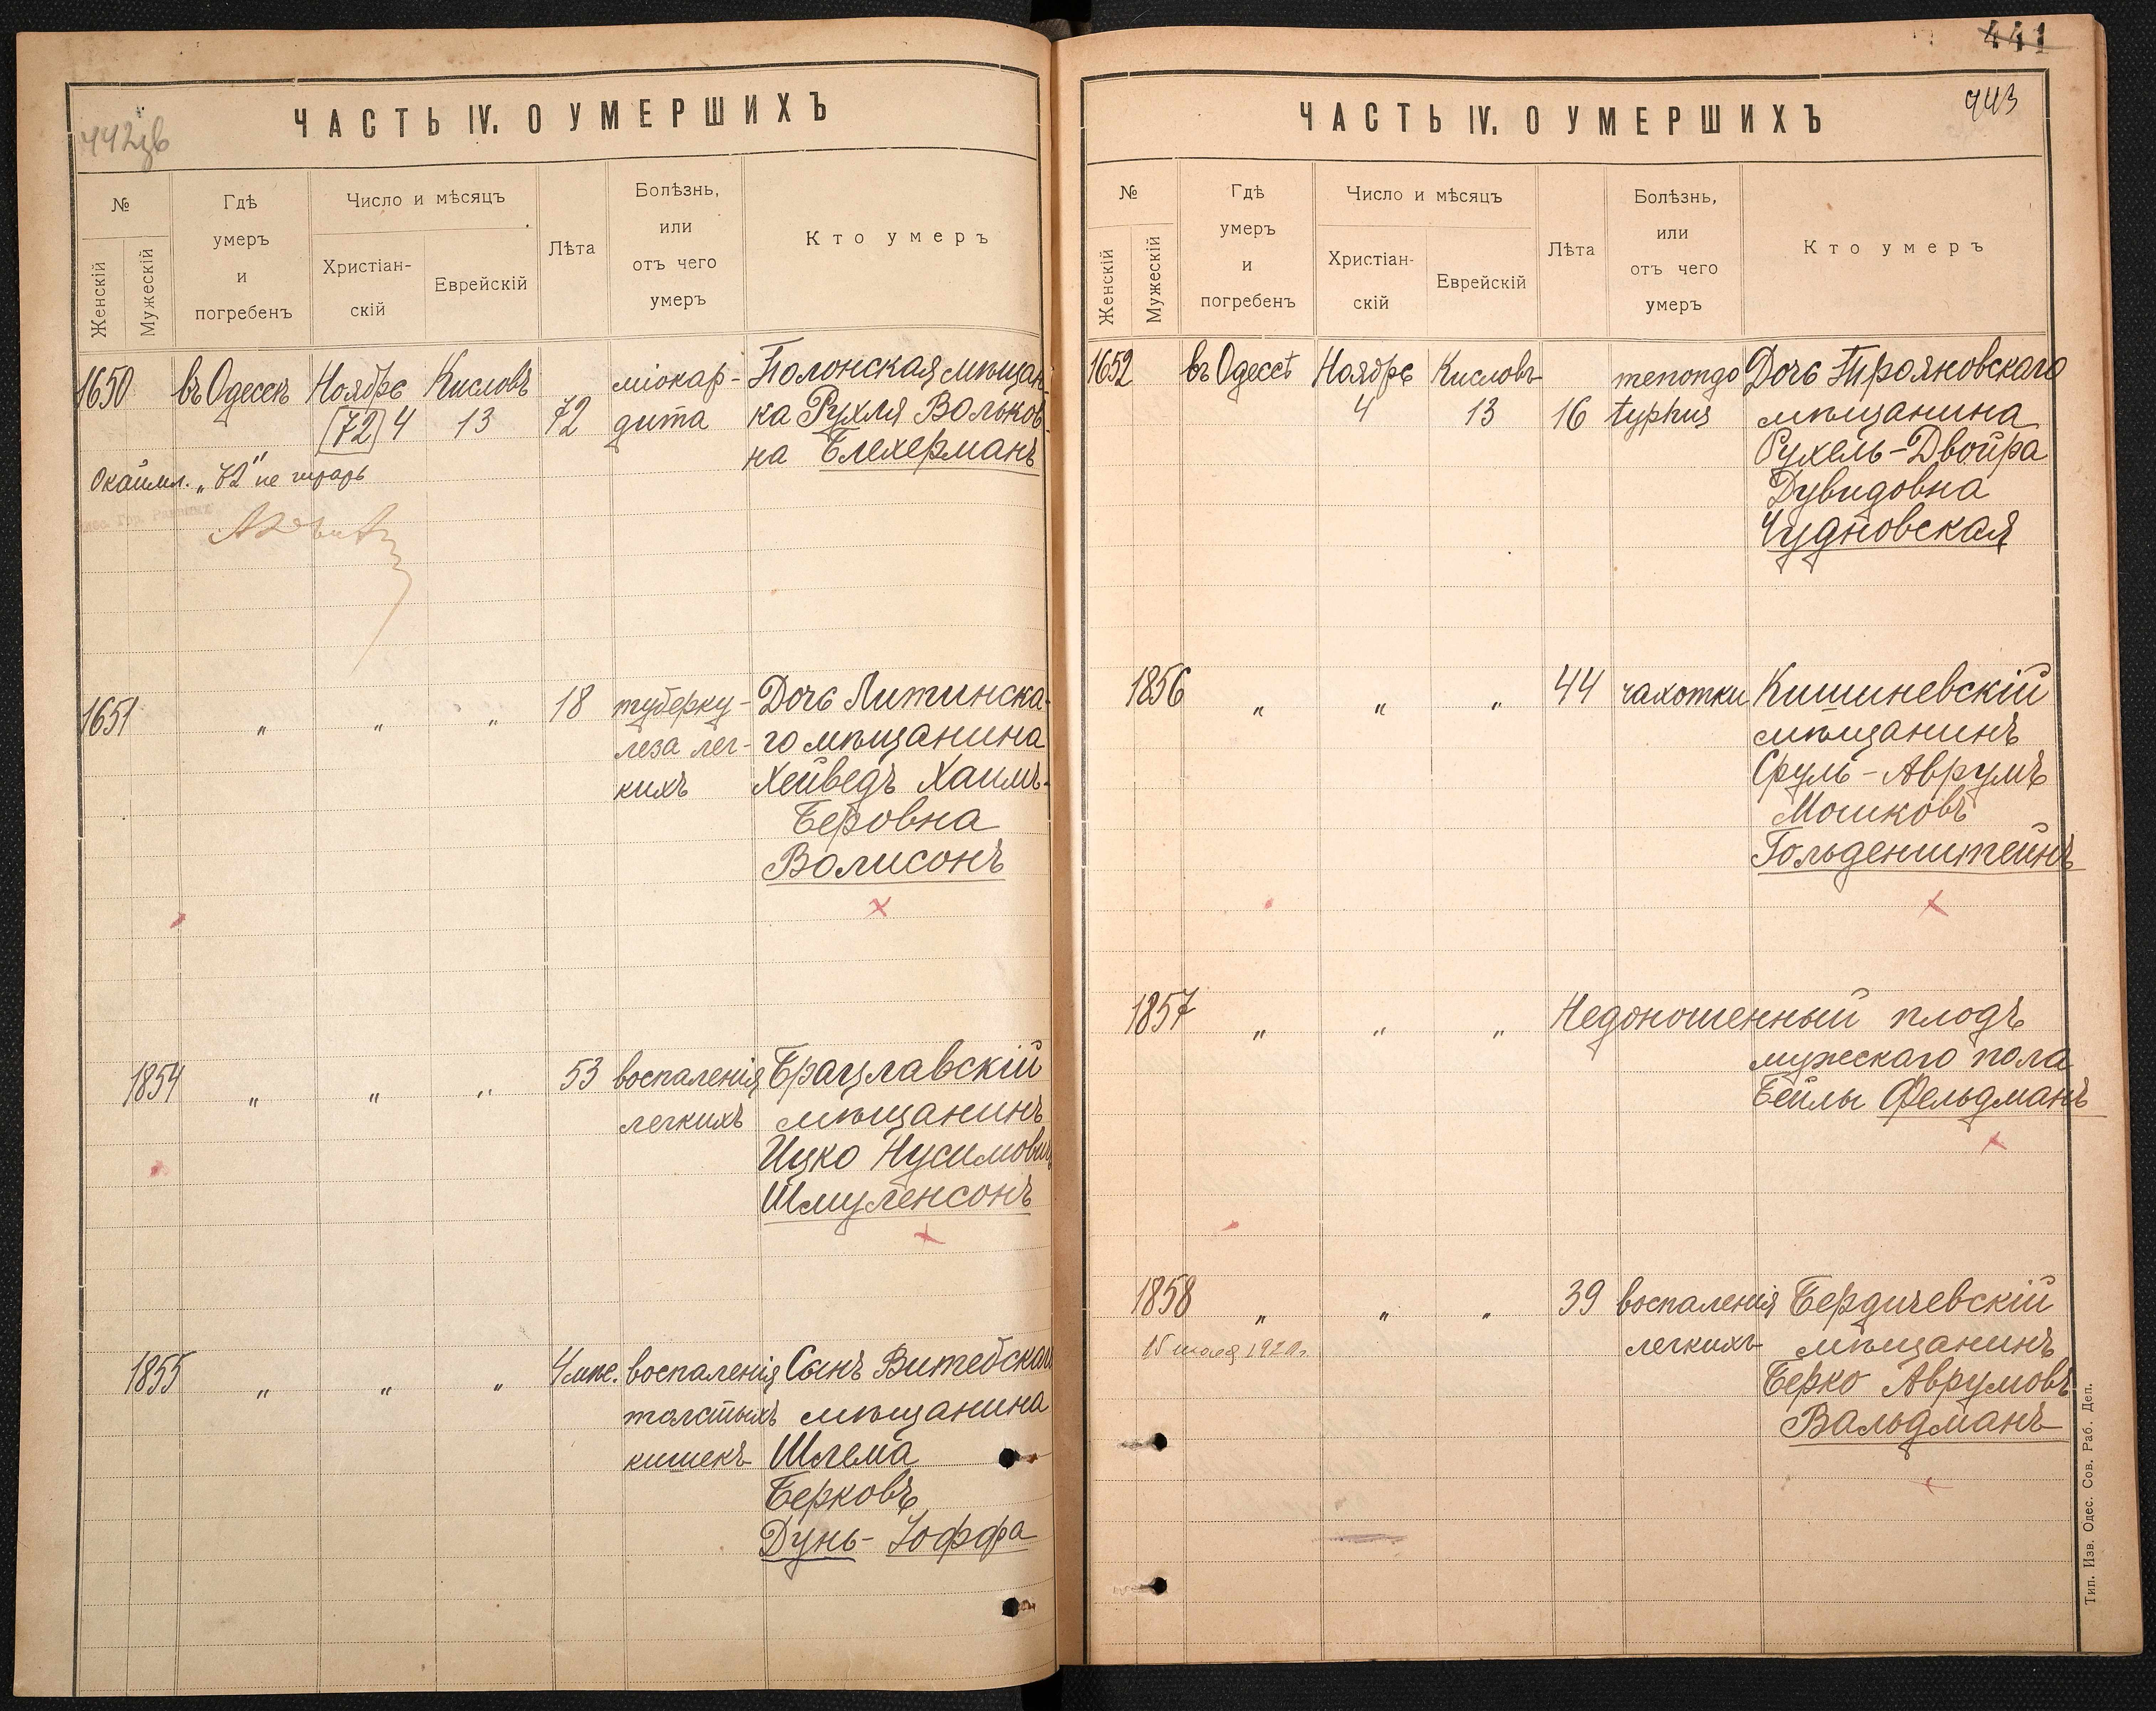 442зв
ЧАСТЬ IV. О УМЕРШИХЪ
№
Женскій
Мужескій
Гдѣ
умеръ
и
погребенъ
Число и мѣсяцъ
Христіан-
скій
Еврейскій
Лѣта
Болѣзнь,
или
отъ чего
умеръ
Кто умеръ
1650 въ Одессѣ Ноябрь Кисловъ міокар- Полонская мѣщан
72 4 13 72 дита ка Рухля Вольков-
на Блехерманъ
Окаймл. „72" не читать
1651 " " " 18 туберку- Дочь Литинска-
леза лег- го мѣщанина
кихъ Хейведъ Хаимъ-
Беровна
Волисонъ
1854 " " " 53 воспаленія Брацлавскій
легкихъ мѣщанинъ
Ицко Нусимович
Шмуленсонъ
1855 " " " 4 мѣс. воспаленія Сынъ Витебскаго
толстыхъ мѣщанина
кишекъ Шлема
Берковъ
Дунь-Іоффа
441
443
ЧАСТЬ IV. О УМЕРШИХЪ
№
Женскій
Мужескій
Гдѣ
умеръ
и
погребенъ
Число и мѣсяцъ
Христіан-
скій
Еврейскій
Лѣта
Болѣзнь,
или
отъ чего
умеръ
Кто умеръ
1652 въ Одессѣ Ноябрь Кисловъ Дочь Трояновскаго
4 13 16 typhus мѣщанина
Рухель-Двойра
Дувидовна
Чудновская
1856 " " " 44 чахотки Кишиневскій
мѣщанинъ
Сруль-Аврумъ
Мошковъ
Гольденштейнъ
1857 " " " Недоношенный плодъ
мужескаго пола
Бейлы Фельдманъ
1858 " " " 39 воспаленія Бердичевскій
легкихъ мѣщанинъ
Берко Аврумовъ
Вальдманъ
Тип. Изв. Одес. Сов. Раб. Деп.